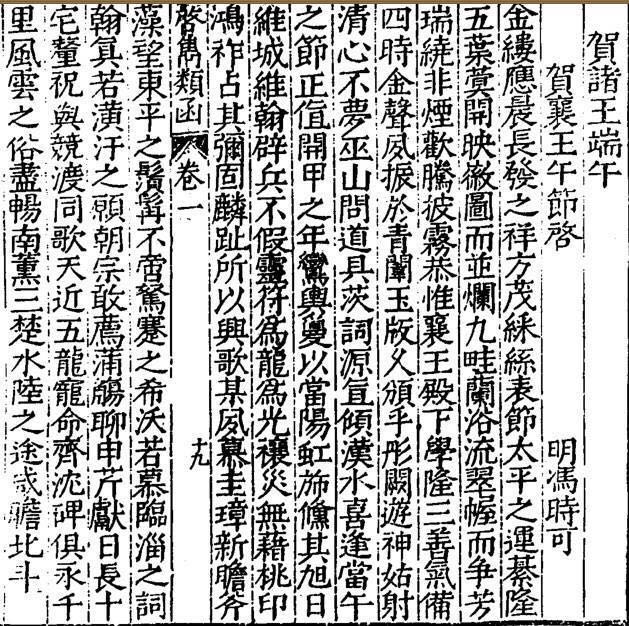 賀諸王端午
賀襄王午節啓 明馮時可
金縷應晨長發之祥方茂綵絲表節太平之運綦隆
五葉蓂開映徽圖而並爛九畦蘭浴流翠幄而争芳
瑞繞非煙歡騰披霧恭惟襄王殿下學隆三善氣備
四時金聲夙振於青闈玉版久頒乎彤闕遊神姑射
清心不夢巫山問道具茨詞源直傾漢水喜逢當午
之節正值開甲之年鸞輿戛以當陽虹旆儵其旭日
維城維翰辟兵不假靈符為龍為光禳災無藉桃印
鴻祚占其彌固麟趾所以興歌某夙慕圭璋新瞻斧
啓雋類函 卷一 十九
藻望東平之鬚髯不啻駑蹇之希沃若慕臨淄之詞
翰真若潢汙之願朝宗敢薦蒲觴聊申芹獻日長十
宅釐祝與競渡同歌天近五龍寵命齊沈碑俱永千
里風雲之俗盡暢南薰三楚水陸之途咸瞻北斗